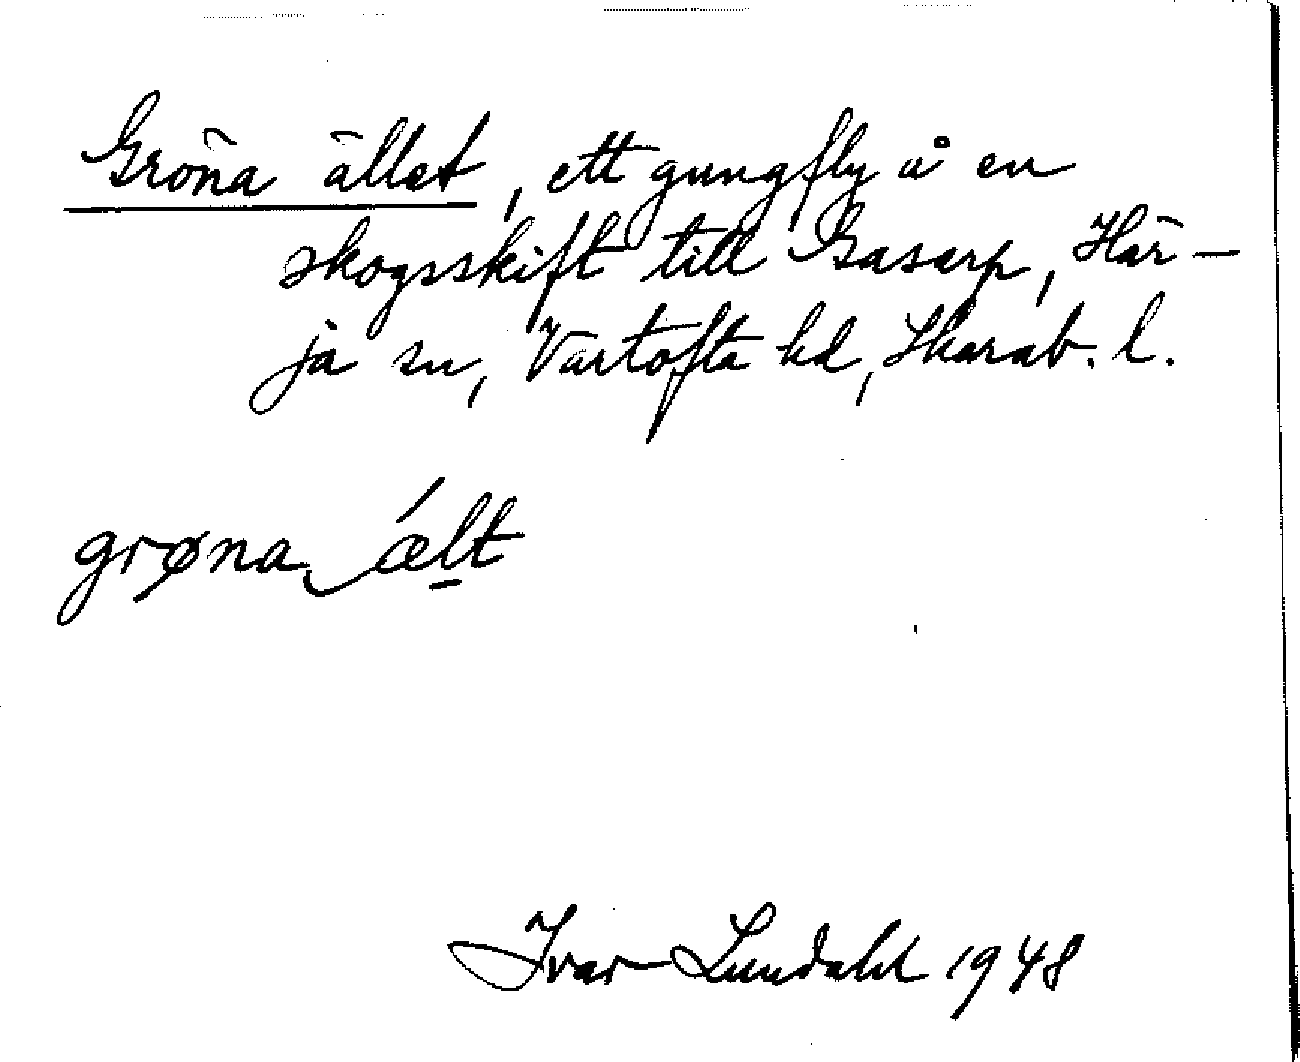 Gröna ället, ett gungfly å en
skogsskift till Gasarp, Här-
ja sn, Vartofta hd, Skarab. l.
grøna ǽlt
Ivar Lundahl 1948